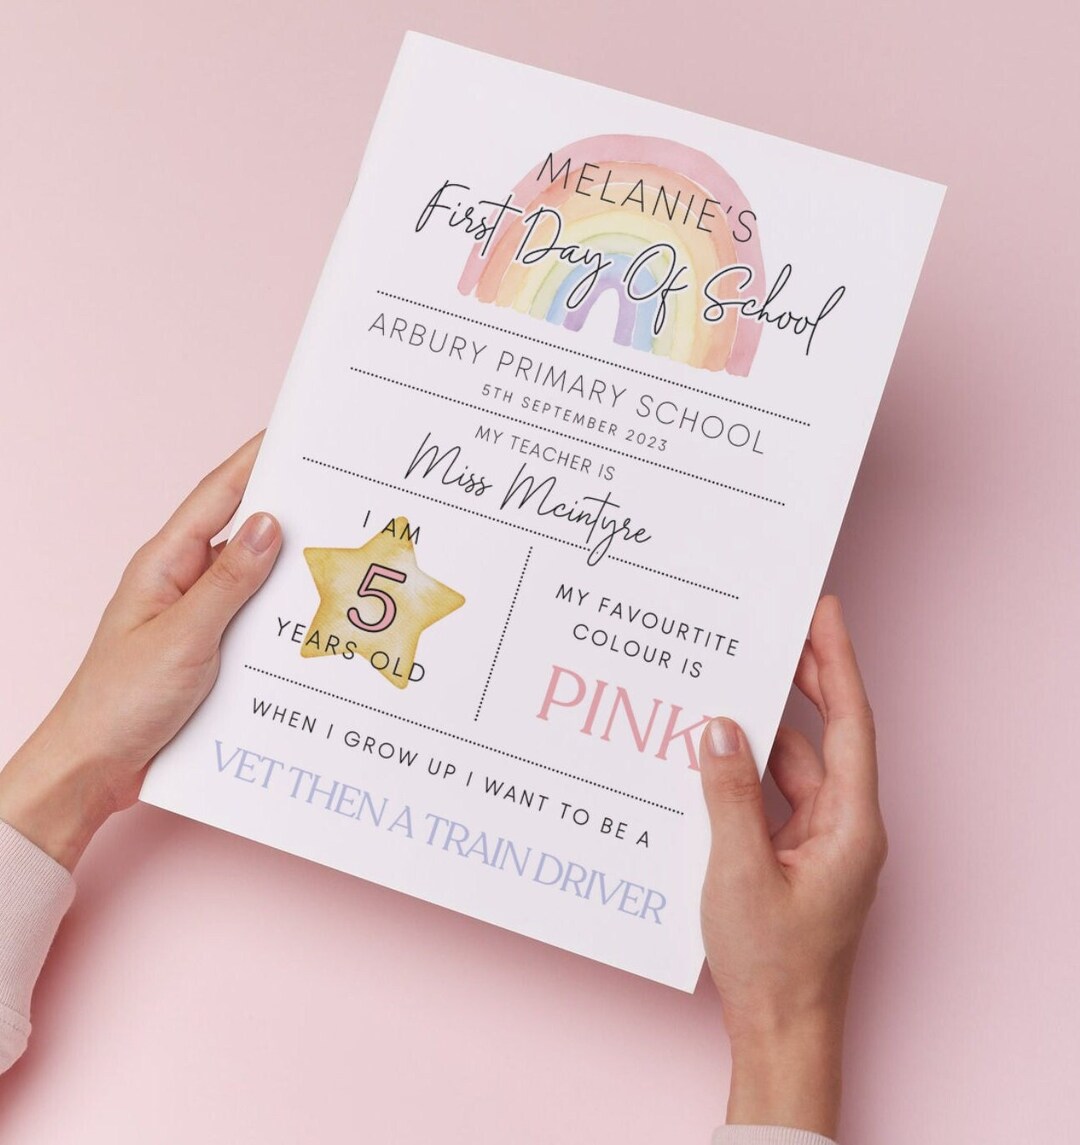 MELANIE'S
First Day Of School
ARBURY PRIMARY SCHOOL
5TH SEPTEMBER 2023
MY TEACHER IS
Miss Mcintyre
I AM
5
YEARS OLD
MY FAVOURTITE
COLOUR IS
PINK
WHEN I GROW UP I WANT TO BE A
VET THEN A TRAIN DRIVER